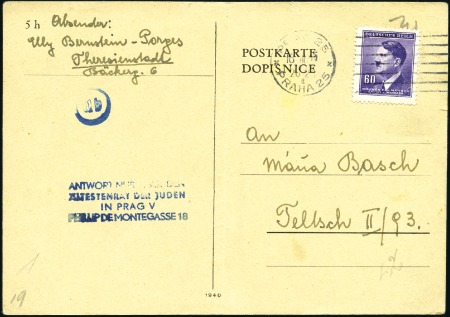 5 h Absender:
Elly Bernstein-Porges
Theresienstadt
Bäckerg. 6
ANTWORT NUR
ÄLTESTENRAT DER JUDEN
IN PRAG V
PHILIP DE MONTEGASSE 18
19
1940
POSTKARTE
DOPISNICE
PRAHA 25
DEUTSCHES REICH
60
An
Basch
Teltsch II/93.